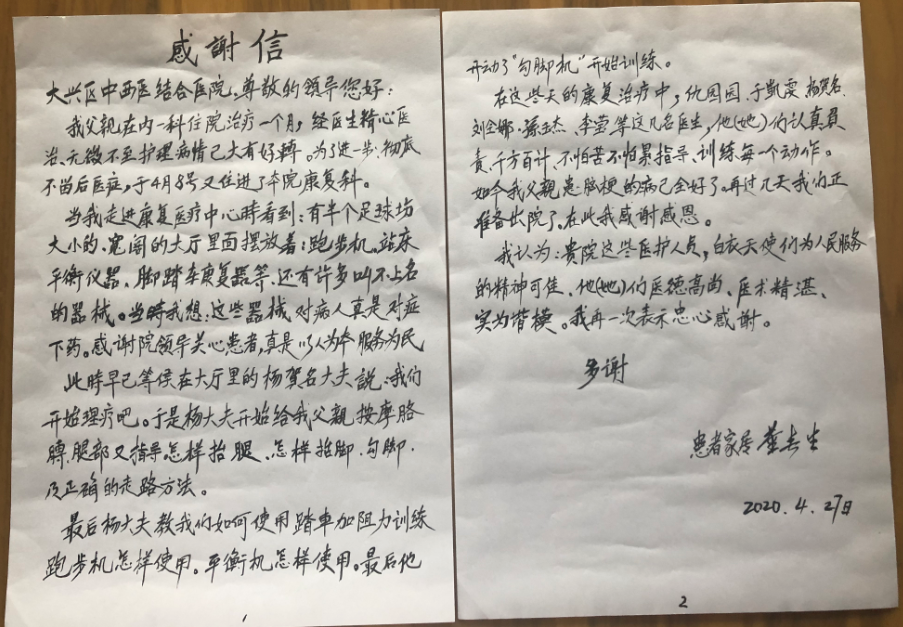 感謝信
大兴区中西医结合医院,尊敬的领导您好:
我父親在内一科住院治疗一个月,经医生精心医
治、无微不至护理病情已大有好轉。为了进一步、彻底
不留后医症,于4月8号又住进了本院康复科。
当我走进康复医疗中心時看到:有半个足球场
大小的、宽阔的大厅里面摆放着:跑步机。站床
平衡仪器、脚踏车康复器等、还有许多叫不上名
的器械。当時我想:这些器械对病人真是对症
下药。感谢院领导关心患者,真是以人为本服务为民
此時早已等侯在大厅里的杨賀名大夫説:我们
开始理疗吧。于是杨大夫开始给我父親按摩胳
膊、腿部又指导怎样抬腿、怎样抬脚、勾脚、
及正确的走路方法。
最后杨大夫教我们如何使用踏車加阻力训练
跑步机怎样使用。平衡机怎样使用。最后他
1
开动了"勾脚机"开始训练。
在这些天的康复治疗中,仇园园、于凱雯、杨賀名、
刘全娜、孫玉杰、李莹等这几名医生,他(她)们认真負
責、千方百计、不怕苦不怕累指导、训练每一个动作。
如今我父親患脑梗的病已全好了。再过几天我们正
准备出院了。在此我感谢感恩。
我认为:贵院这些医护人员,白衣天使们为人民服务
的精神可佳、他(她)们医德高尚、医术精湛、
实为楷模。我再一次表示忠心感谢。
多谢
患者家居
2020.4.27日
2